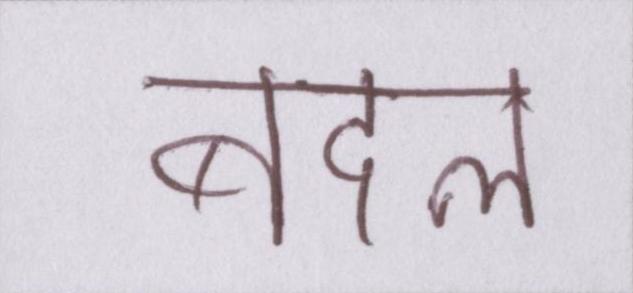 बदल